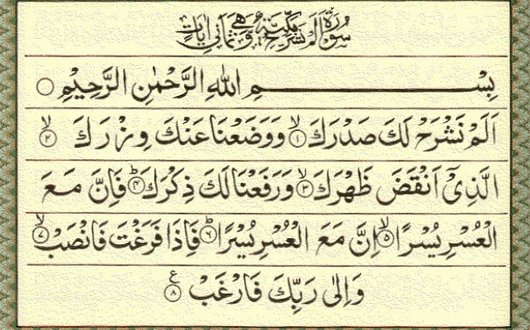 سُوْرَةُ اَلَمْ نَشْرَحْ مَكِّيَّةٌ وَّهِيَ ثَمَانِيْ اٰيَاتٍ
بِسْمِ اللهِ الرَّحْمٰنِ الرَّحِيْمِ
اَلَمْ نَشْرَحْ لَكَ صَدْرَكَ ۙ﴿۱﴾ وَوَضَعْنَا عَنْكَ وِزْرَكَ ۙ﴿۲﴾
الَّذِيْۤ اَنْقَضَ ظَهْرَكَ ۙ﴿۳﴾ وَرَفَعْنَا لَكَ ذِكْرَكَ ؕ﴿۴﴾ فَاِنَّ مَعَ
الْعُسْرِ يُسْرًا ۙ﴿۵﴾ اِنَّ مَعَ الْعُسْرِ يُسْرًا ؕ﴿۶﴾ فَاِذَا فَرَغْتَ فَانْصَبْ ۙ﴿۷﴾
وَاِلٰى رَبِّكَ فَارْغَبْ ﴿۸﴾ ع